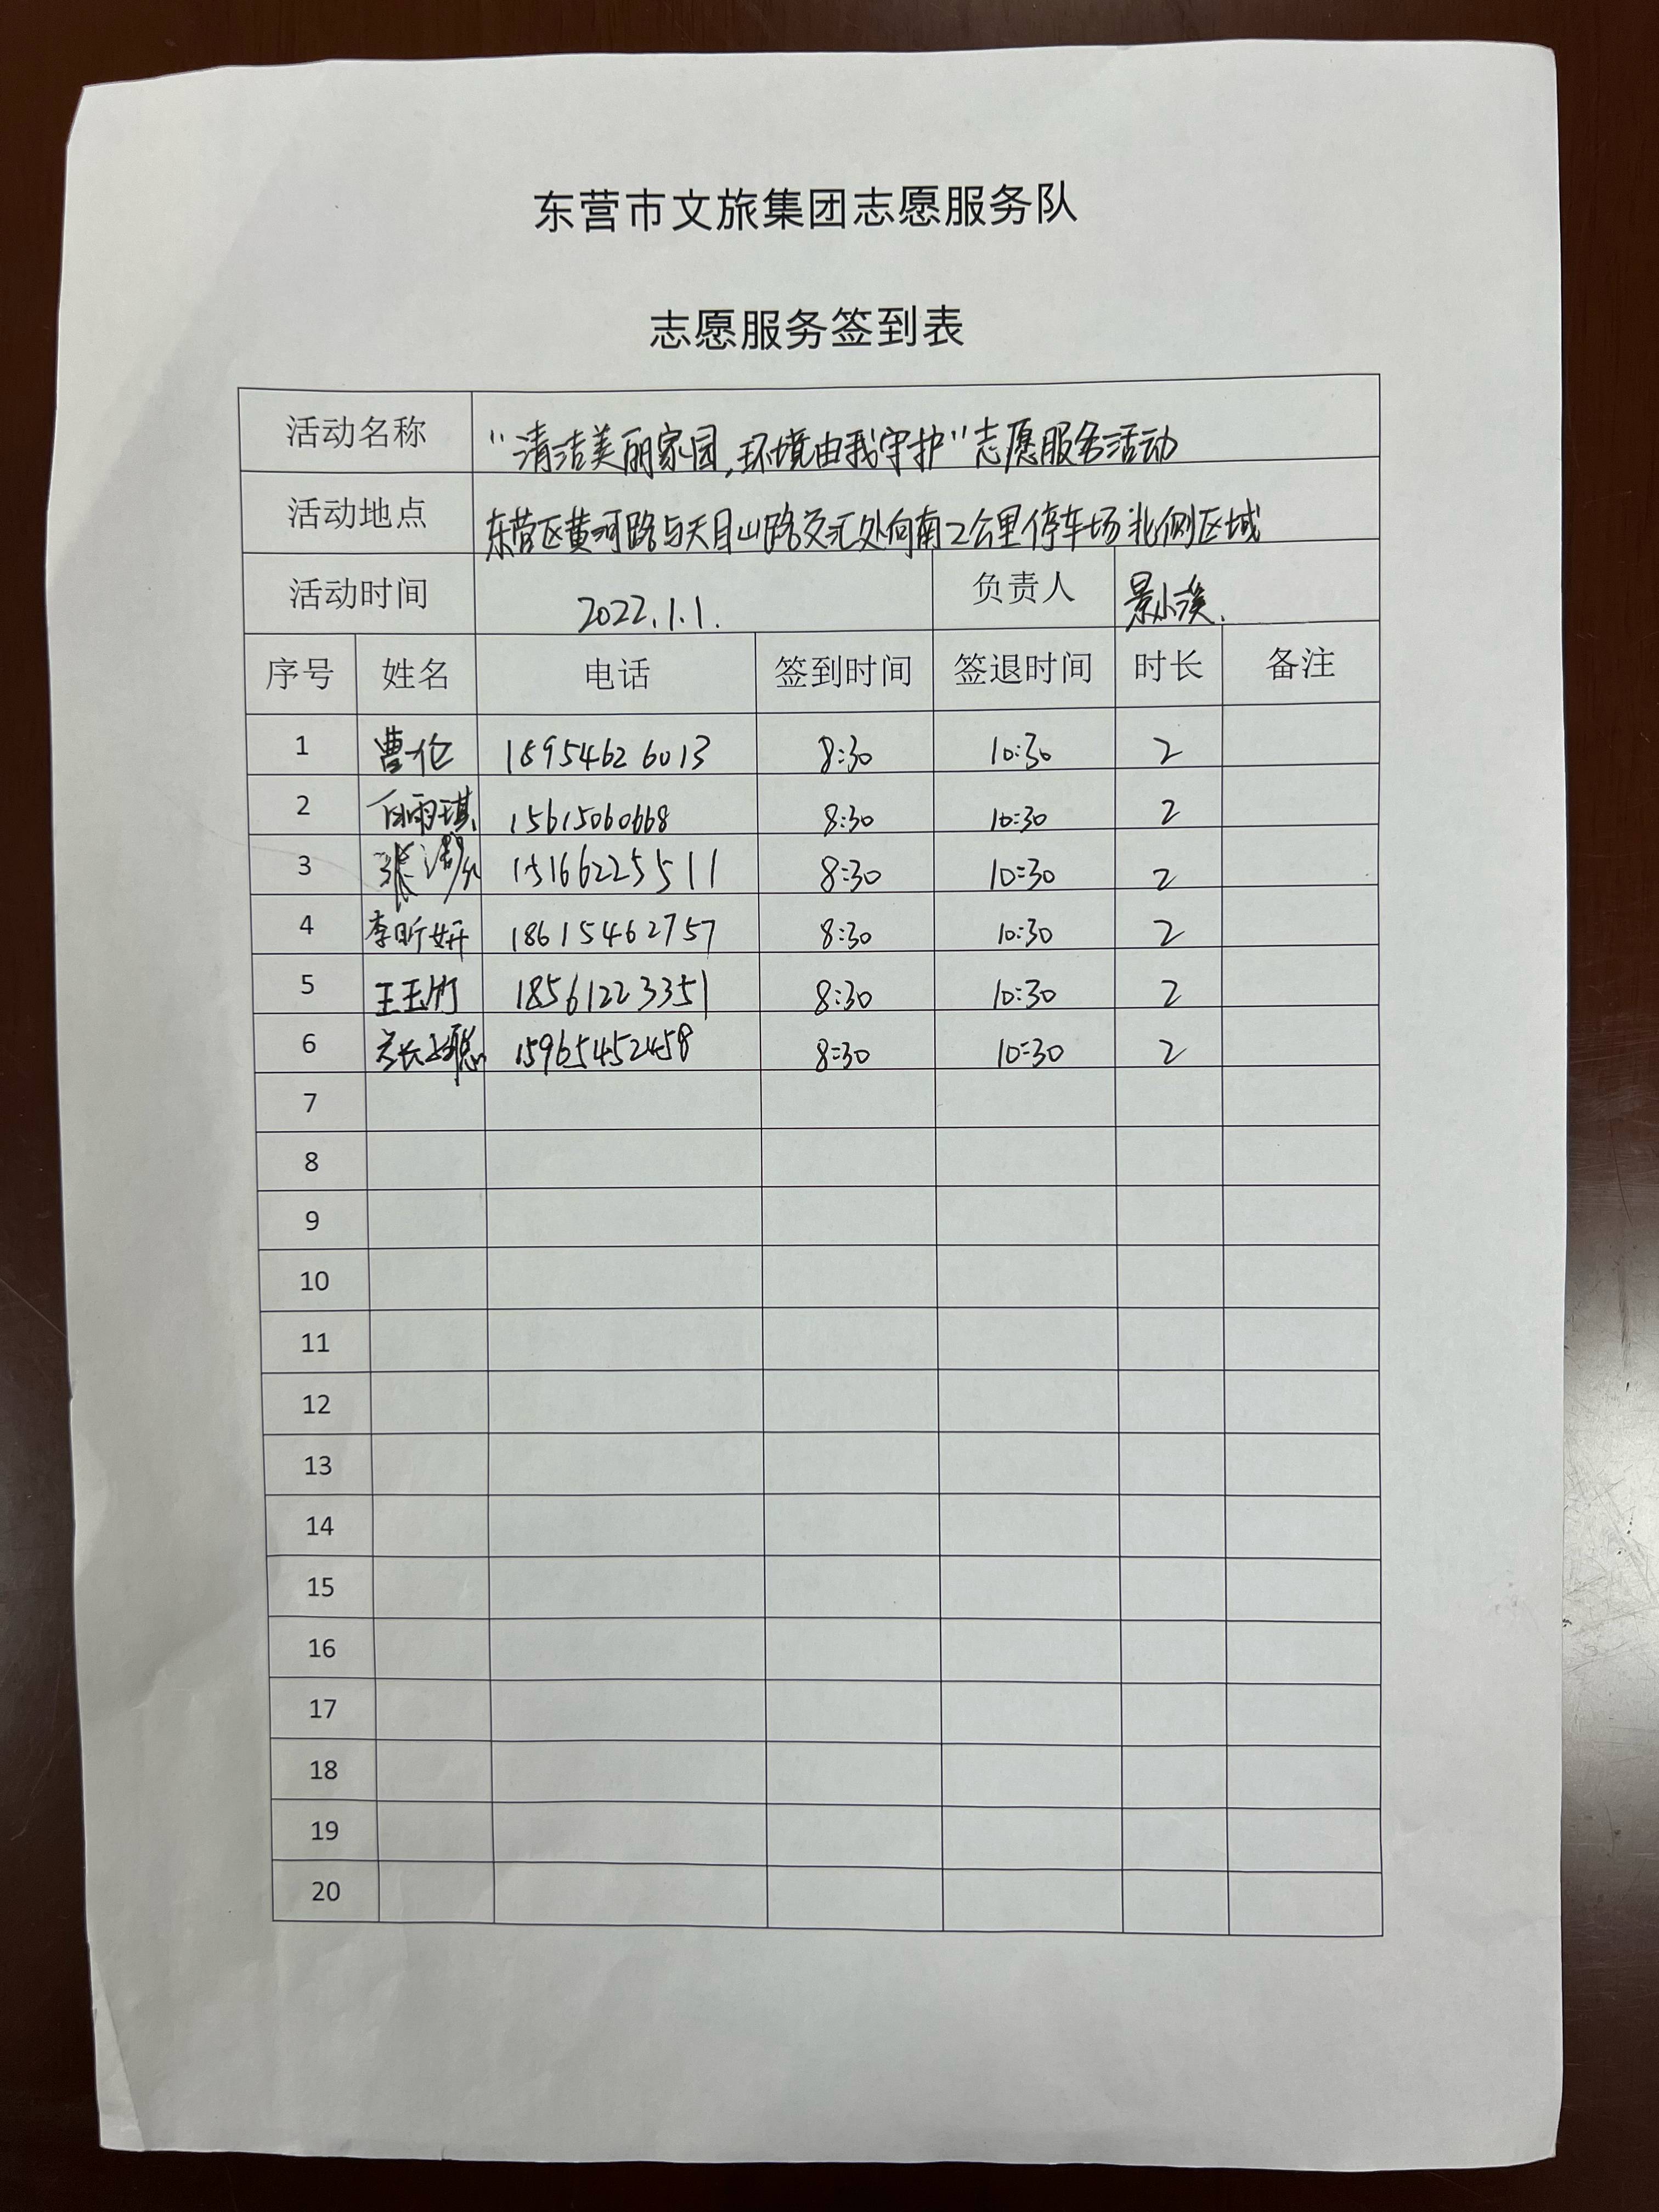 东营市文旅集团志愿服务队
志愿服务签到表
活动名称 "清洁美丽家园,环境由我守护"志愿服务活动
活动地点 东营区黄河路与天目山路交汇处向南2公里停车场北侧区域
活动时间 2022.1.1. 负责人 景小溪.
序号 姓名 电话 签到时间 签退时间 时长 备注
1 曹伦 18954626013 8:30 10:30 2
2 雨琪 15615060668 8:30 10:30 2
3 张 15166225511 8:30 10:30 2
4 李昕妍 18615462757 8:30 10:30 2
5 王玉竹 18561223351 8:30 10:30 2
6 15965452458 8:30 10:30 2
7
8
9
10
11
12
13
14
15
16
17
18
19
20